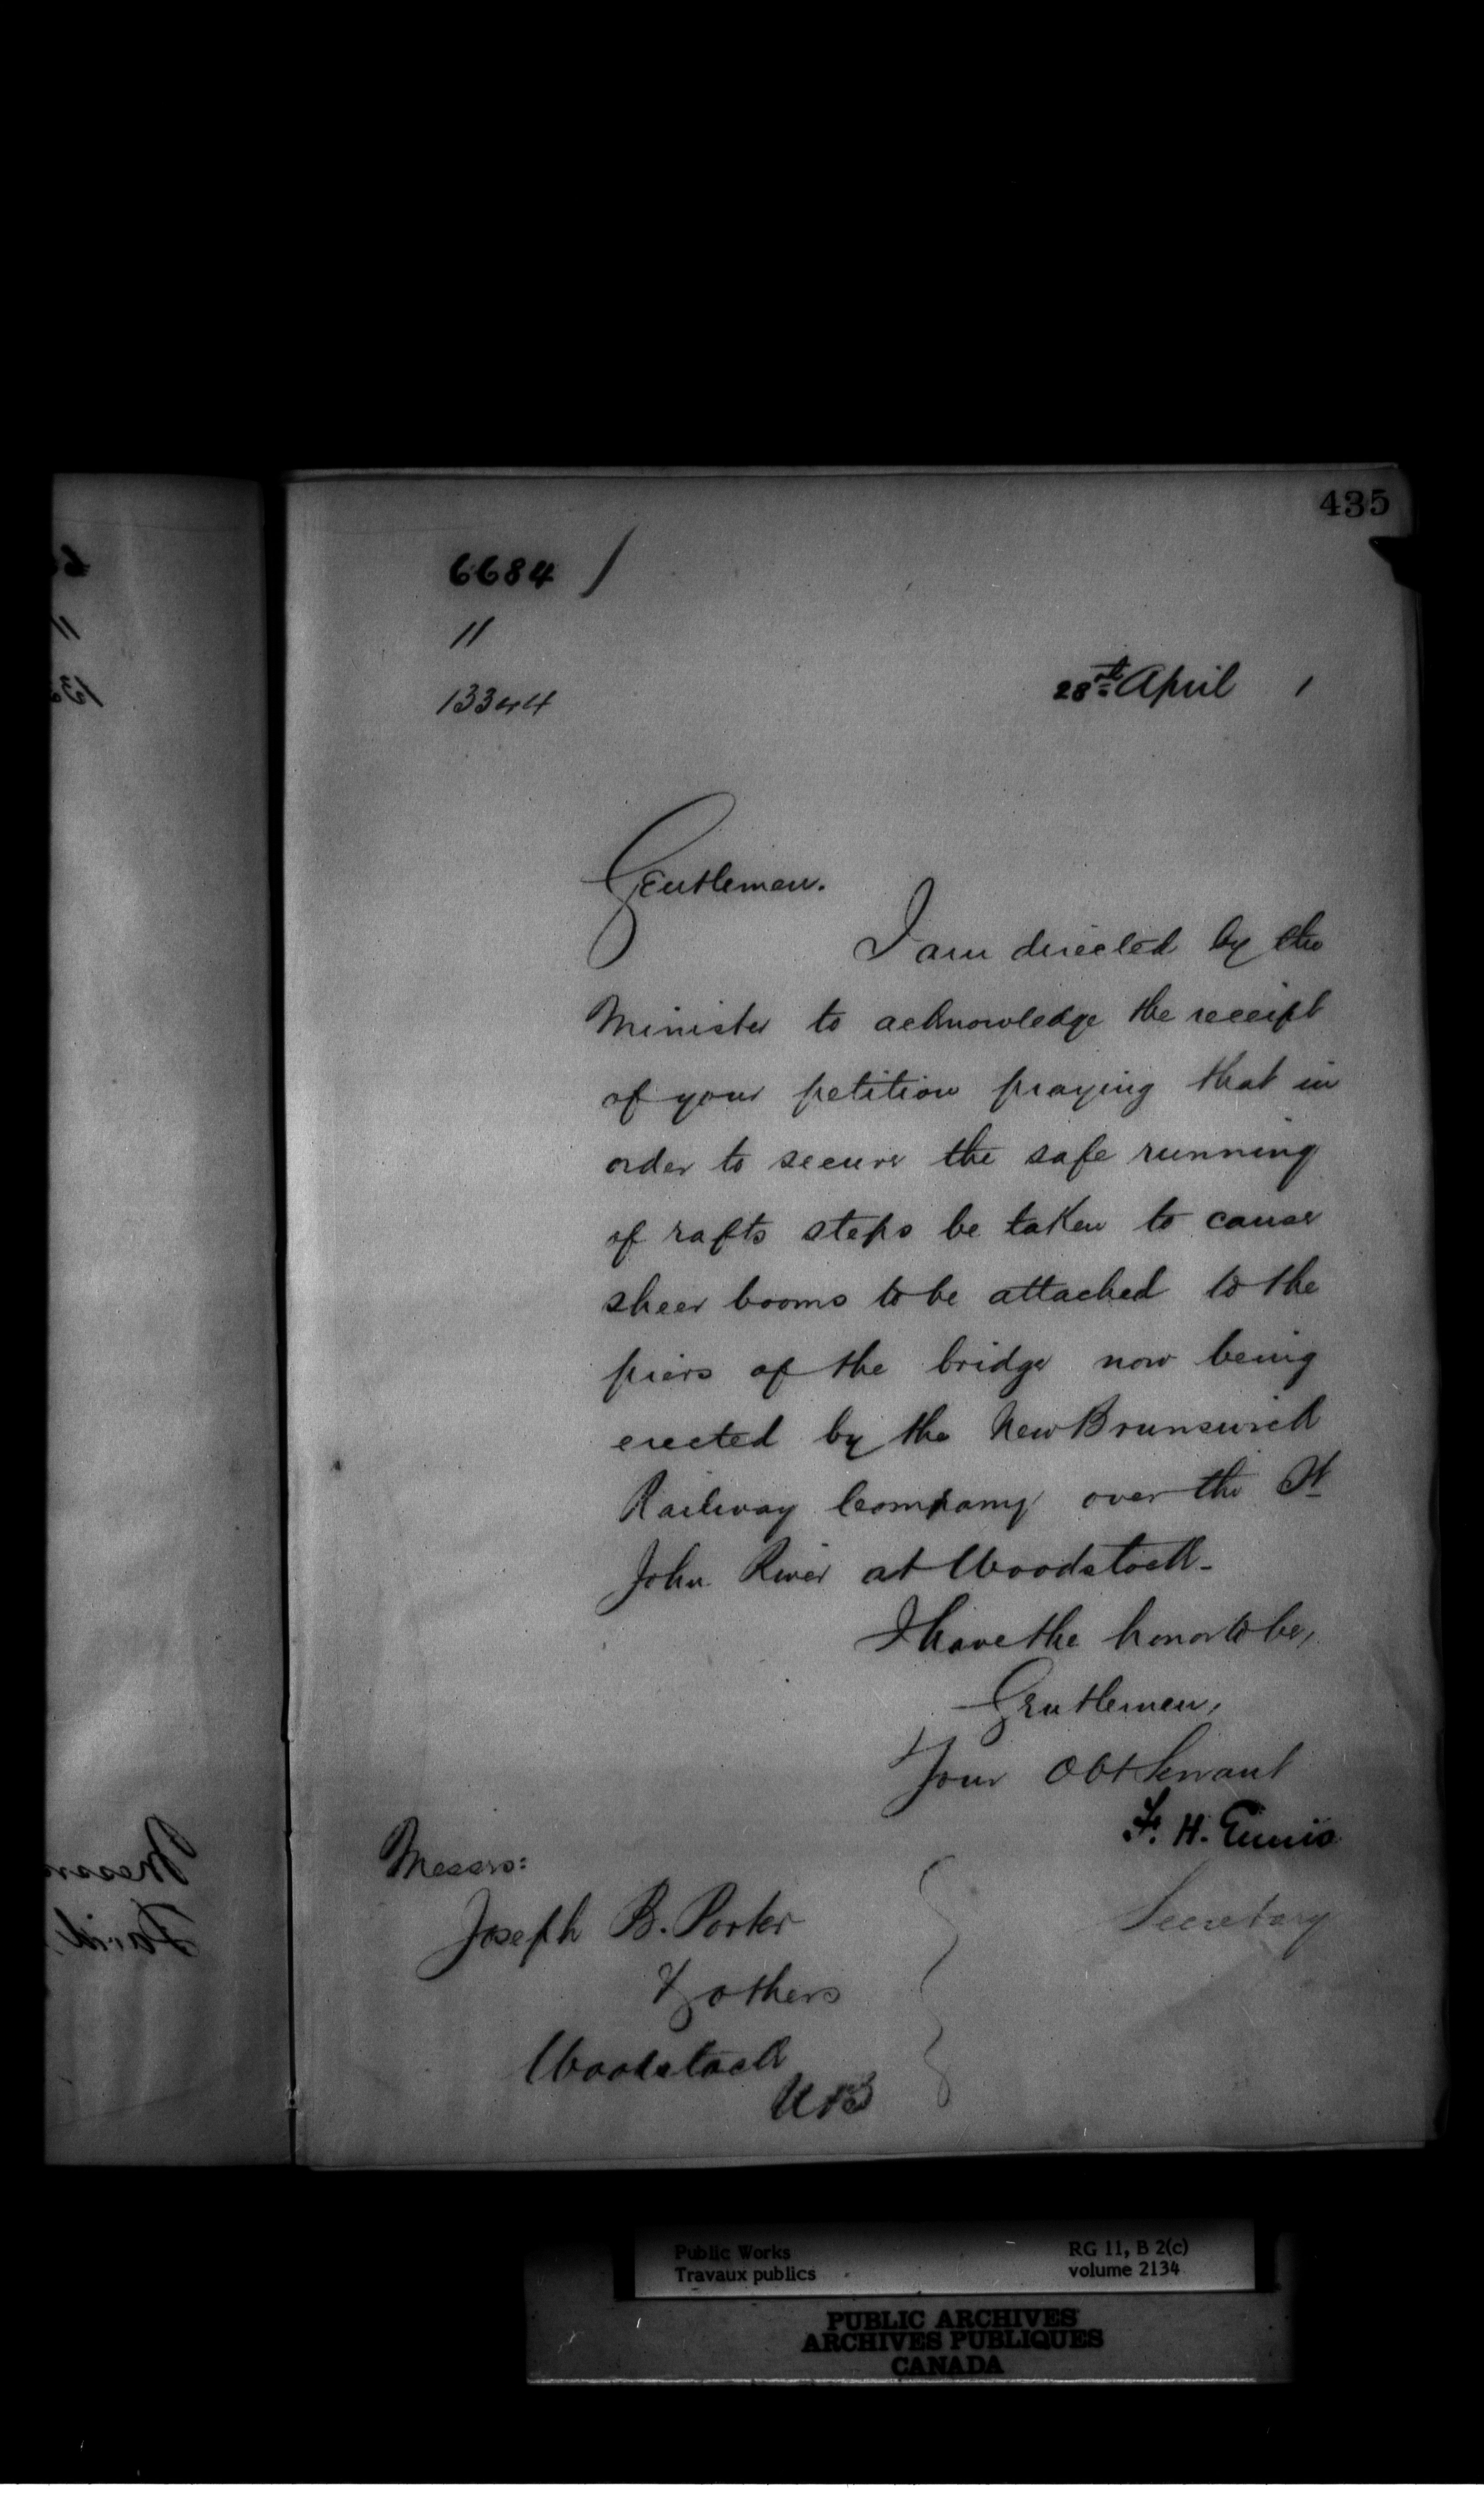 435
6684 /
11
13344
28th April 1
Gentlemen.
I am directed by the
Minister to acknowledge the receipt
of your petition praying that in
order to secure the safe running
of rafts steps be taken to cause
sheer booms to be attached to the
piers of the bridge now being
erected by the New Brunswick
Railway Company over the St
John River at Woodstock-
I have the honor to be,
Gentlemen,
Your Obt Servant
F. H. Ennis
Secretary
Messrs:
Joseph B. Porter
& others
Woodstock
N B
Public Works
Travaux publics
RG 11, B 2(c)
volume 2134
PUBLIC ARCHIVES
ARCHIVES PUBLIQUES
CANADA